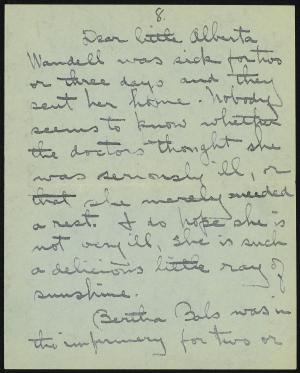 8.
Dear little Alberta
Wandell was sick for two
or three days and they
sent her home. Nobody
seems to know whether
the doctors thought she
was seriously ill, or
that she merely needed
a rest. I do hope she is
not very ill, she is such
a delicious little ray of
sunshine.
Bertha Bals was in
the infirmary for two or